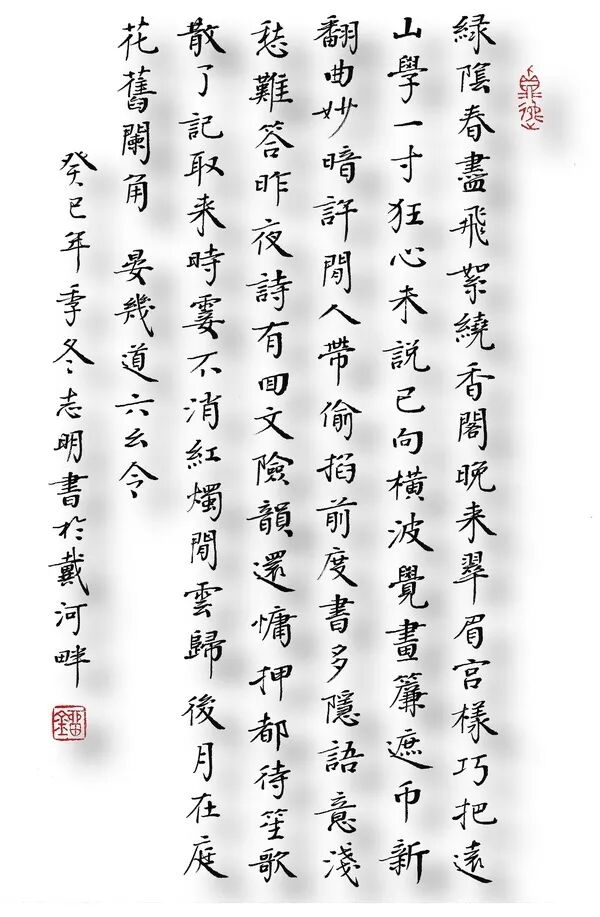 綠隂春盡飛絮繞香閣晚来翠眉宮樣巧把遠
山學一寸狂心未說已向橫波覺畫簾遮帀新
翻曲妙暗許閒人帶偷掐前度書多隱語意淺
愁難答昨夜詩有回文險韻還慵押都待笙歌
散了記取来時霎不消紅燭閒雲歸後月在庭
花舊闌角 晏幾道六幺令
癸巳年季冬志明書於戴河畔